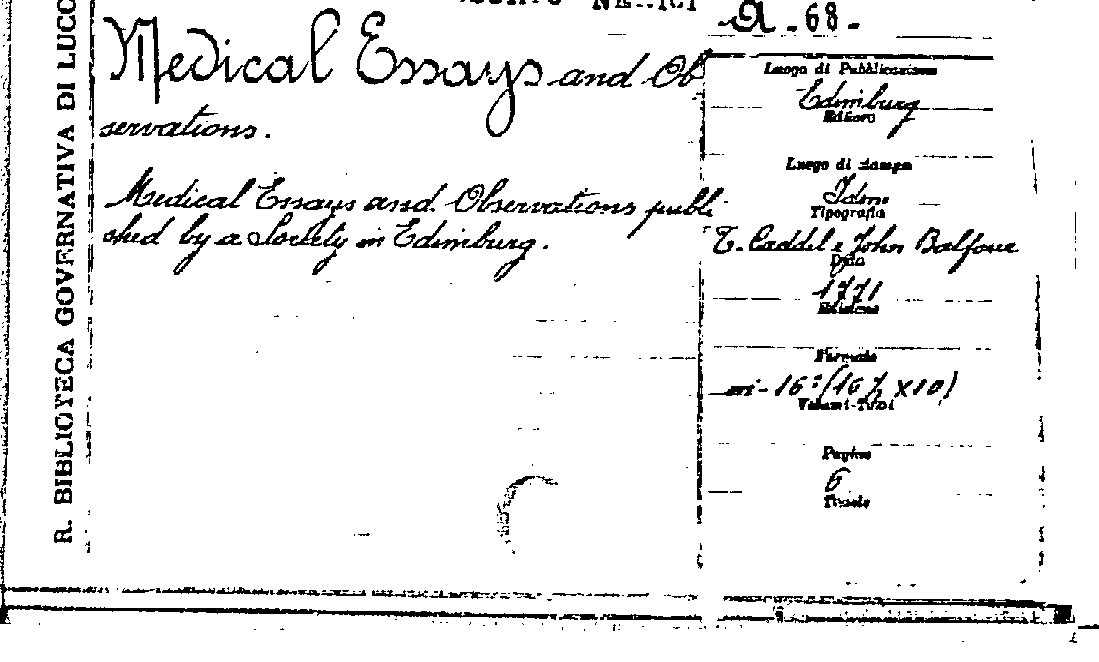 A - 68 -
R. BIBLIOTECA GOVERNATIVA DI LUCC
Medical Essays and Ob
servations.
Medical Essays and Observations publi
shed by a Society in Edimburg.
Luogo di Pubblicazione
Edimburg
Editore
Luogo di stampa
Idem
Tipografia
T. Caddel e John Balfour
Data
1771
Edizione
Formato
in-16º (16½ x10)
Volumi-Tomi
Pagine
6
Tavole